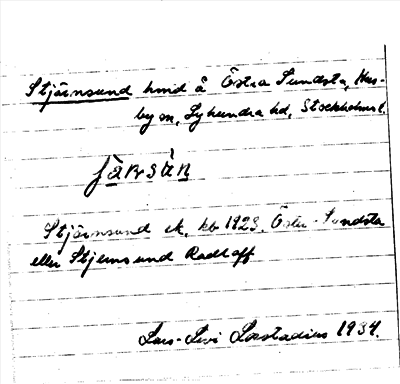 Stjärnsund hmd å Östra Sundsta, Hus-
by sn, Lyhundra hd, Stockholms l.
Stjärnsund ek. kb 1923. Öster-Sundsta
eller Stjernsund Radloff
Lars-Levi Læstadius 1934.